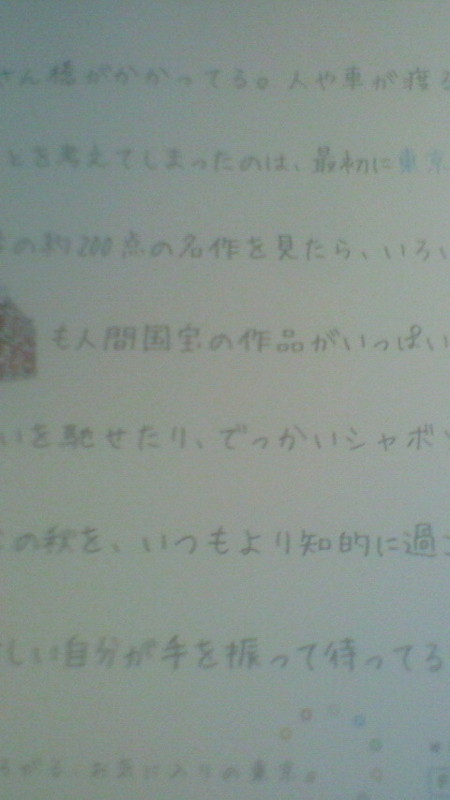 さん橋がかかってる。人や車が渡る
とを考えてしまったのは、最初に東京
の約200点の名作を見たら、いろい
も人間国宝の作品がいっぱい
いを馳せたり、でっかいシャボン
の秋を、いつもより知的に過ご
しい自分が手を振って待ってる
ろがる、お気に入りの東京。